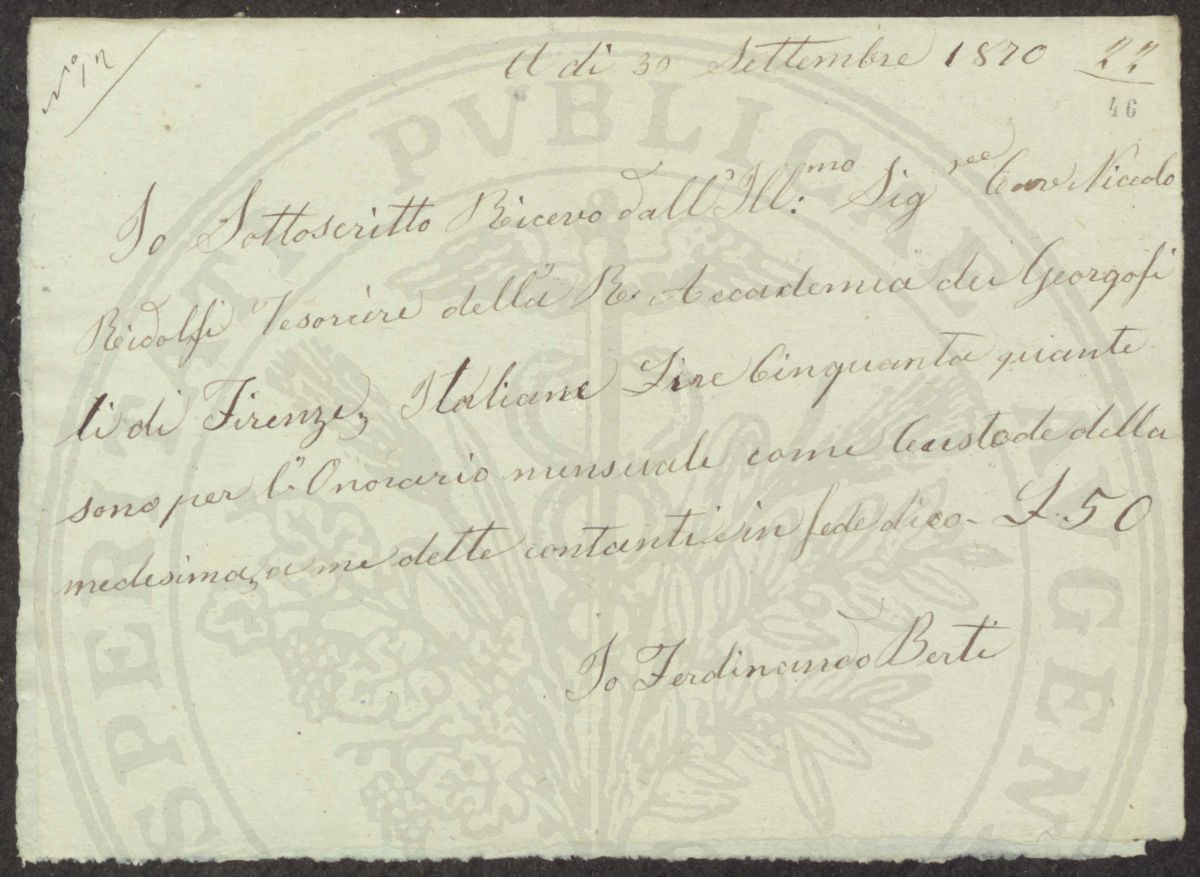 No 12
A di 30 Settembre 1870
22
46
Io Sottoscritto Ricevo dall' Ill.mo Sigree Cav Niccolo
Ridolfi Tesoriere della R. Accademia dei Georgofi
li di Firenze, Italiane Lire Cinquanta quante
sono per l'Onorario mensuale come Custode della
medesima, a me dette contanti in fede dico - L. 50
Io Ferdinando Berti
PVBLICAE
SPERITATI
AVGEN